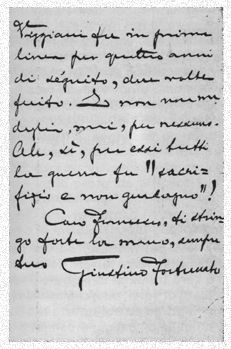 Viggiani fu in prima
linea per quattro anni
di séguito, due volte
ferito. E non una me
daglia, mai, per nessuno.
Ah, sì, per essi tutti
la guerra fu "sacri-
fizio e non guadagno"!
Caro Francesco, ti strin-
go forte la mano, sempre
tuo Giustino Fortunato